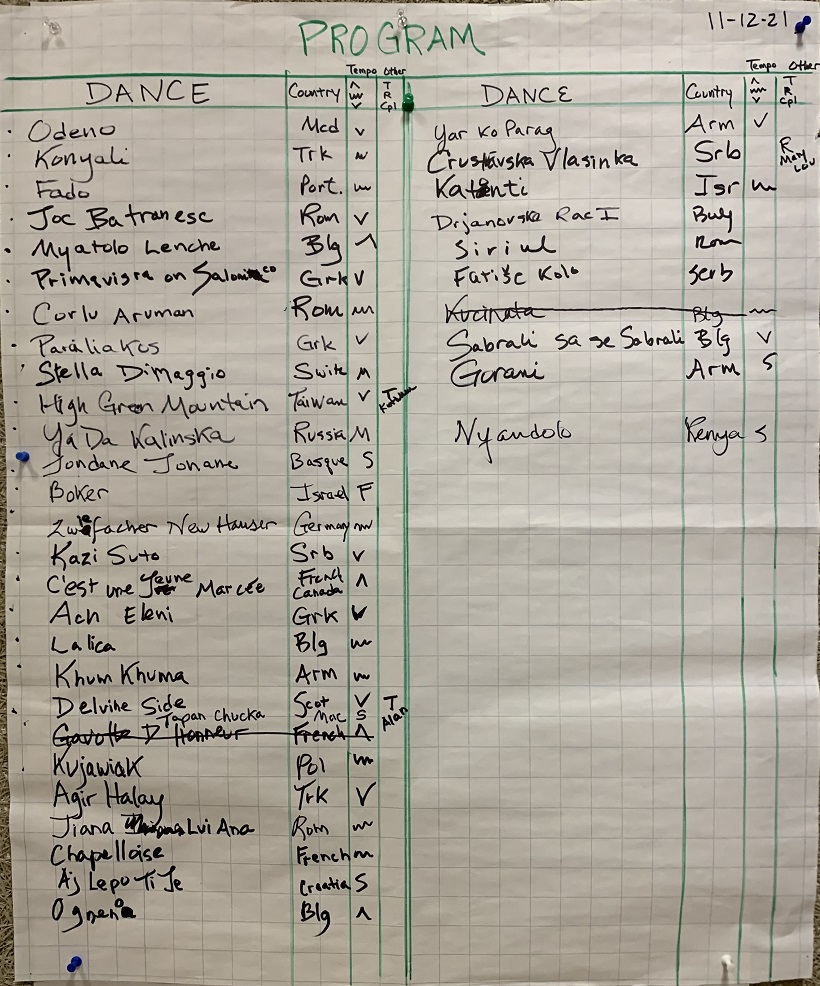 11-12-21
PROGRAM
Tempo Other Tempo Other
DANCE Country T R Cpl DANCE Country T R Cpl
Odeno Mcd v
Konyali Trk
Fado Port.
Joc Batranesc Rom V
Myatolo Lenche Blg ʌ
Primavisra on Grk V
Corlu Aruman Rom
Paraliakos Grk v
Stella Dimaggio M
High Green Mountain Taiwan v T
Ya Da Kalinska Russia M
Jondane Jonane Basque S
Boker Israel F
Zwiefacher New Hauser Germany
Kazi Suto Srb v
C'est une Jeune Marcée French Canada ʌ
Ach Eleni Grk v
Lalica Blg
Khum Khuma Arm
Delvine Side Scot V T Alan
Tapan Chucka Mac S
Gavotte D'Honneur French ʌ
Kujawiak Pol
Agir Halay Trk V
Jiana Lui Ana Rom
Chapelloise French
Aj Lepo Ti Je Croatia S
Ognena Blg ʌ
Yar Ko Parag Arm V
Crustavska Vlasinka Srb R Mary Lou
Katanti Isr
Drjanovska Rac I Bulg
Siriul Rom
Fatise Kolo Serb
Kucinata Blg
Sabrali sa se Sabrali Blg v
Gorani Arm S
Nyandolo Kenya S